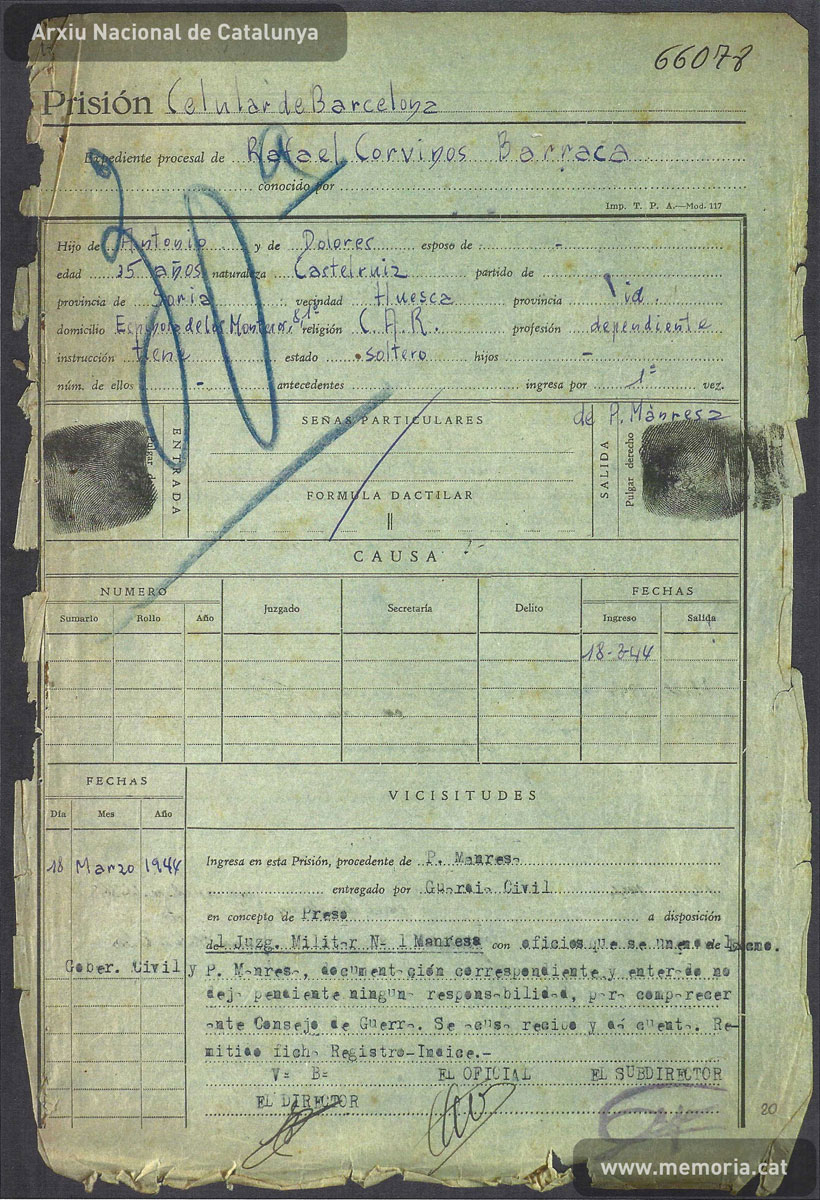 Arxiu Nacional de Catalunya
66078
Prisión Celular de Barcelona
Expediente procesal de Rafael Corvinos Barraca
conocido por
Imp. T. P. A.—Mod. 117
30ª
Hijo de Antonio y de Dolores esposo de -
edad 25 años naturaleza Castelruiz partido de
provincia de Soria vecindad Huesca provincia id.
domicilio religión C.A.R. profesión dependiente
instrucción tiene estado soltero hijos -
núm. de ellos - antecedentes ingresa por 1ª vez.
de P. Manresa
SEÑAS PARTICULARES
ENTRADA
Pulgar
FORMULA DACTILAR
SALIDA
Pulgar derecho
CAUSA
NUMERO Juzgado Secretaría Delito FECHAS
Sumario Rollo Año Ingreso Salida
18-3-44
FECHAS
VICISITUDES
Día Mes Año
18 Marzo 1944
Ingresa en esta Prisión, procedente de P. Manresa
entregado por Guardia Civil
en concepto de Preso a disposición
del Juzg. Militar Nº 1 Manresa con oficios que se unen de
Gober. Civil y P. Manresa, documentación correspondiente y enterado no
deja pendiente ninguna responsabilidad, para comparecer
ante Consejo de Guerra. Se acusa recibo y dá cuenta. Re-
mitida ficha Registro-Indice.-
Vº Bº EL OFICIAL EL SUBDIRECTOR
EL DIRECTOR
20
www.memoria.cat